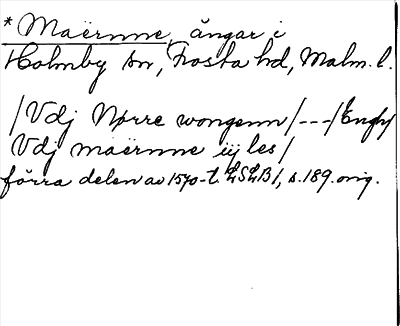 * Maërnne, ängar i
Holmby sn, Frosta hd, Malm. l.
/Vdj Nørre wongenn/---/Engh/
Vdj maërnne iij les/
förra delen av 1570-t. LSLB1, s. 189. orig.